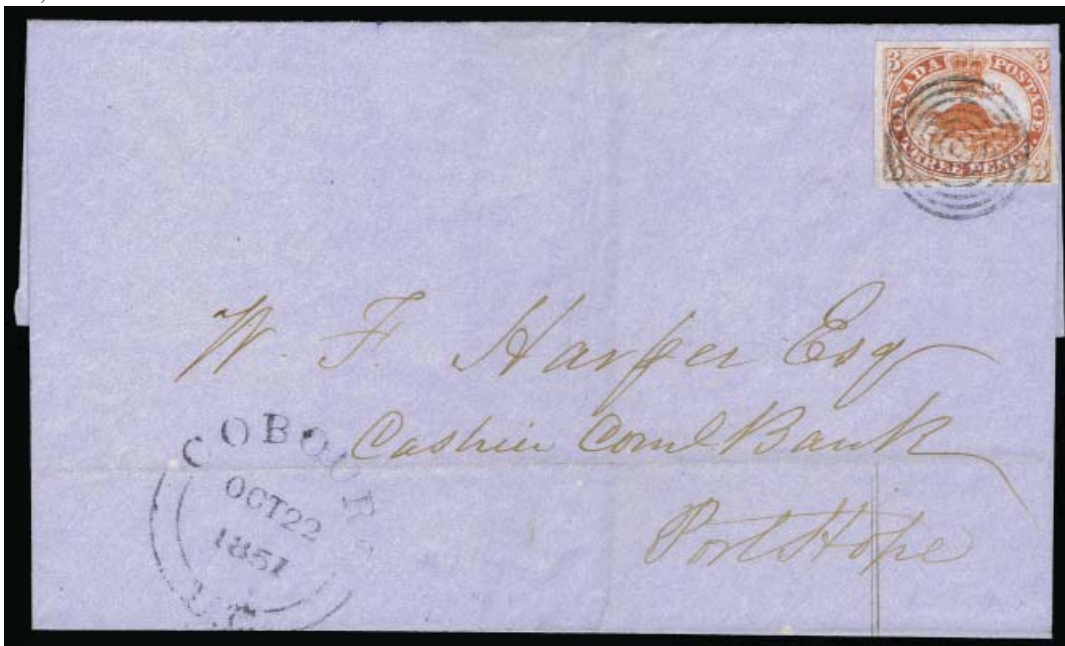 3 3
CANADA POSTAGE
THREE PENCE
W. F. Harper Esq
Cashier Coml Bank
Port Hope
COBOURG
OCT 22
1851
U.C.